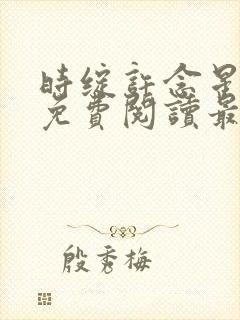 時綻許念星
免費閱讀最
殷秀梅